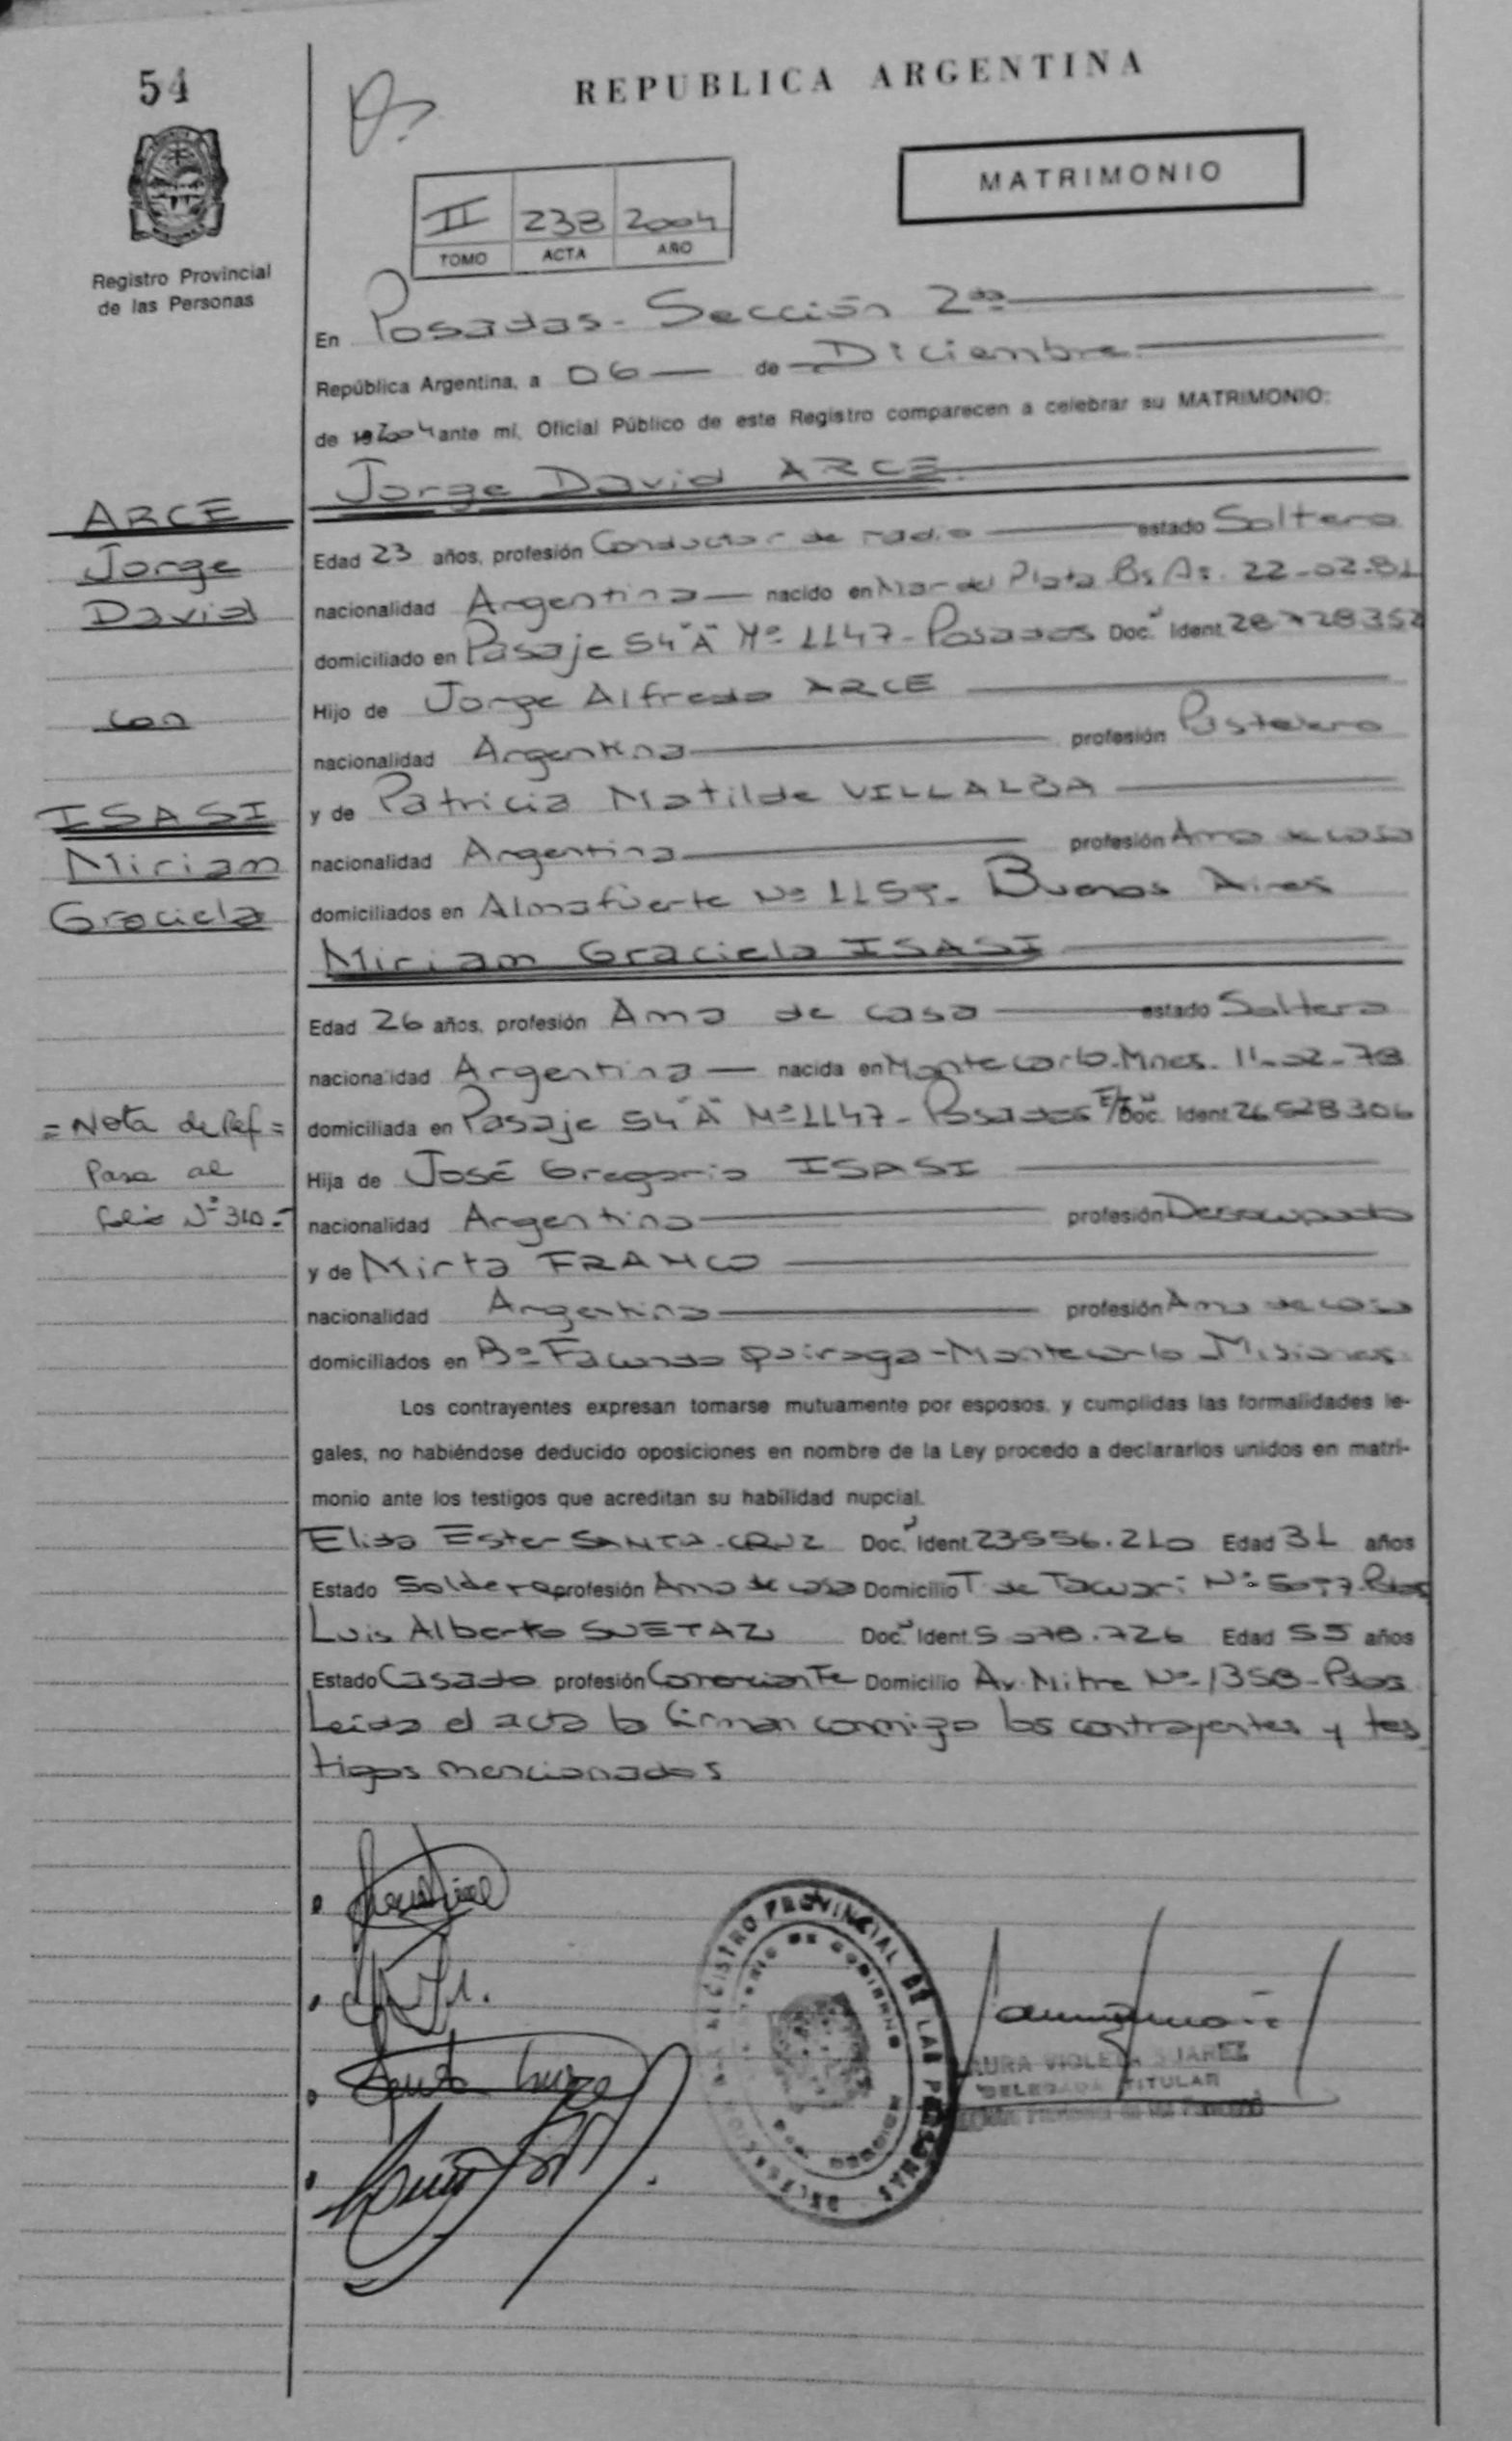 54
REPUBLICA ARGENTINA
MATRIMONIO
II 238 2004
TOMO ACTA AÑO
Registro Provincial
de las Personas
En Posadas - Sección 2da
República Argentina, a 06 de Diciembre
de 2004 ante mí, Oficial Público de este Registro comparecen a celebrar su MATRIMONIO:
Jorge David ARCE
ARCE
Jorge
David
con
ISASI
Miriam
Graciela
Edad 23 años, profesión Conductor de radio estado Soltero
nacionalidad Argentina nacido en Mar del Plata Bs As. 22-02-81
domiciliado en Pasaje 54 "A" Nº 1147 - Posadas Doc. Ident. 28728352
Hijo de Jorge Alfredo ARCE
nacionalidad Argentina profesión Pastelero
y de Patricia Matilde VILLALBA
nacionalidad Argentina profesión Ama de casa
domiciliados en Almafuerte Nº Buenos Aires
Miriam Graciela ISASI
Edad 26 años, profesión Ama de casa estado Soltera
nacionalidad Argentina nacida en Montecarlo-Mnes. 11-02-78
domiciliada en Pasaje 54 "A" Nº 1147 - Posadas Doc. Ident. 26528306
= Nota de Ref =
Pasa al
folio Nº 310.-
Hija de José Gregorio ISASI
nacionalidad Argentina profesión Desocupado
y de Mirta FRANCO
nacionalidad Argentina profesión Ama de casa
domiciliados en Bº Facundo Quiroga - Montecarlo Misiones
Los contrayentes expresan tomarse mutuamente por esposos, y cumplidas las formalidades le-
gales, no habiéndose deducido oposiciones en nombre de la Ley procedo a declararlos unidos en matri-
monio ante los testigos que acreditan su habilidad nupcial.
Elisa Ester SANTA CRUZ Doc. Ident. 23.556.210 Edad 31 años
Estado Soldera profesión Ama de casa Domicilio T. de Tacuarí Nº Pdas
Luis Alberto SUETAZ Doc. Ident. 5 078.726 Edad 55 años
Estado Casado profesión Comerciante Domicilio Av. Mitre Nº 1358 - Pdas
Leida el acta la firman conmigo los contrayentes y tes
tigos mencionados
REGISTRO PROVINCIAL DE LAS PERSONAS
MINISTERIO DE GOBIERNO
LAURA VIOLETA SUAREZ
DELEGADA TITULAR